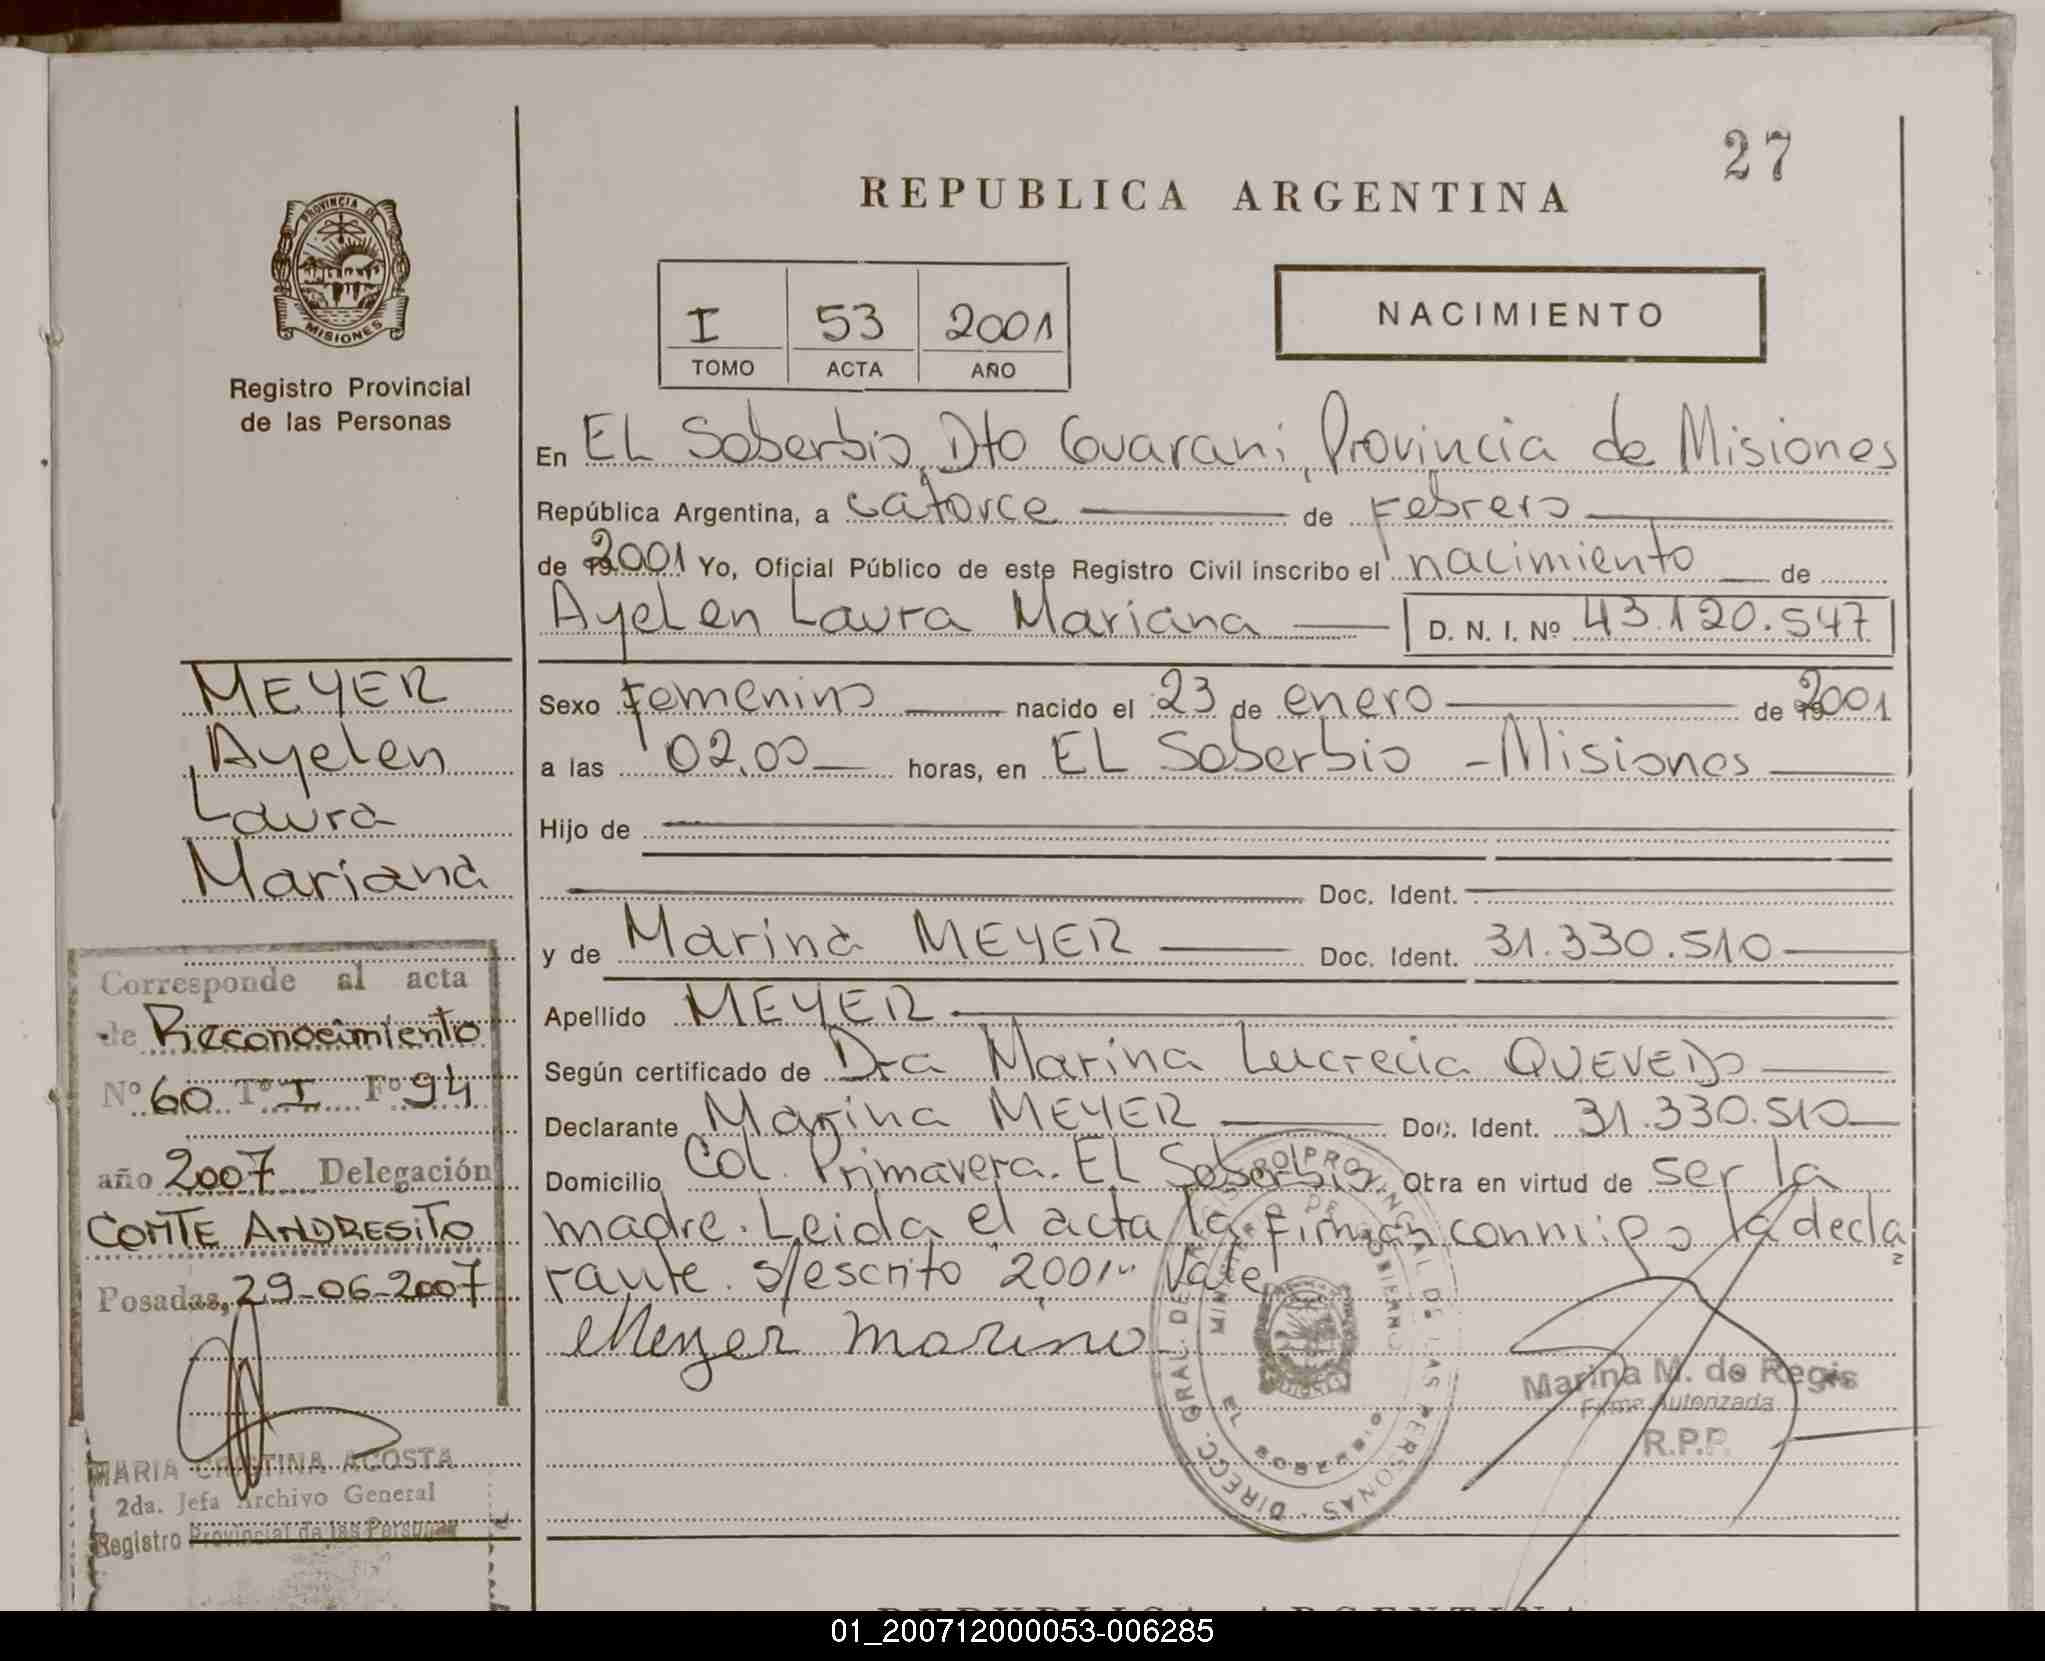 27
REPUBLICA ARGENTINA
PROVINCIA DE
MISIONES
Registro Provincial
de las Personas
I 53 2001
TOMO ACTA AÑO
NACIMIENTO
En EL Soberbio, Dto Guarani, Provincia de Misiones
República Argentina, a catorce de Febrero
de 2001 Yo, Oficial Público de este Registro Civil inscribo el nacimiento de
Ayelen Laura Mariana D. N. I. Nº 43.120.547
Sexo Femenino nacido el 23 de enero de 2001
a las 02,00 horas, en EL Soberbio - Misiones
Hijo de
Doc. Ident.
y de Marina MEYER Doc. Ident. 31.330.510
Apellido MEYER
Según certificado de Dra Marina Lucrecia QUEVEDO
Declarante Marina MEYER Doc. Ident. 31.330.510
Domicilio Col. Primavera. EL Soberbio. Otra en virtud de ser la
madre. Leida el acta la firman conmigo la decla
rante. s/escrito "2001" Vale
Meyer Marina
MEYER
Ayelen
Laura
Mariana
Corresponde al acta
de Reconocimiento
Nº 60 Tº I Fº 94
año 2007 Delegación
COMTE ANDRESITO
Posadas, 29-06-2007
MARIA CRISTINA ACOSTA
2da. Jefa Archivo General
Registro Provincial de las Personas
DIRECC. GRAL. DEL REGISTRO PROVINCIAL DE LAS PERSONAS
MINISTERIO DE GOBIERNO
EL SOBERBIO
Marina M. de Regis
Firma Autorizada
R.P.P.
REPUBLICA ARGENTINA
01_200712000053-006285